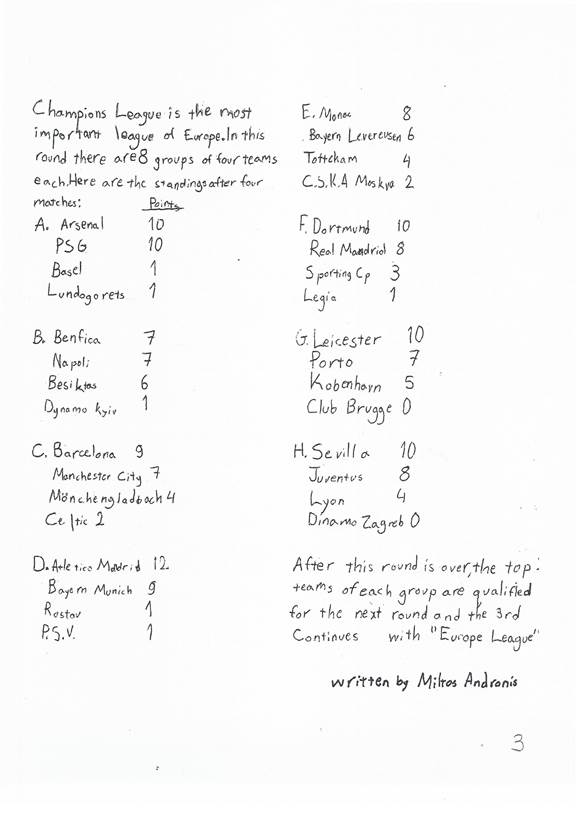 Champions League is the most
important league of Europe.In this
round there are 8 groups of four teams
each.Here are the standings after four
matches: Points
A. Arsenal 10
PSG 10
Basel 1
Lundogorets 1
B. Benfica 7
Napoli 7
Besiktas 6
Dynamo kyiv 1
C. Barcelona 9
Manchester City 7
Mönchengladbach 4
Celtic 2
D. Atletico Madrid 12
Bayern Munich 9
Rostov 1
P.S.V. 1
E. Monac 8
Bayern Levereusen 6
Tottcham 4
C.S.K.A Moskva 2
F. Dortmund 10
Real Mandrid 8
Sporting Cp 3
Legia 1
G. Leicester 10
Porto 7
Kobenhavn 5
Club Brugge 0
H. Sevilla 10
Juventus 8
Lyon 4
Dinamo Zagreb 0
After this round is over,the top:
teams of each group are qualified
for the next round and the 3rd
Continues with "Europe League"
written by Miltos Andronis
3